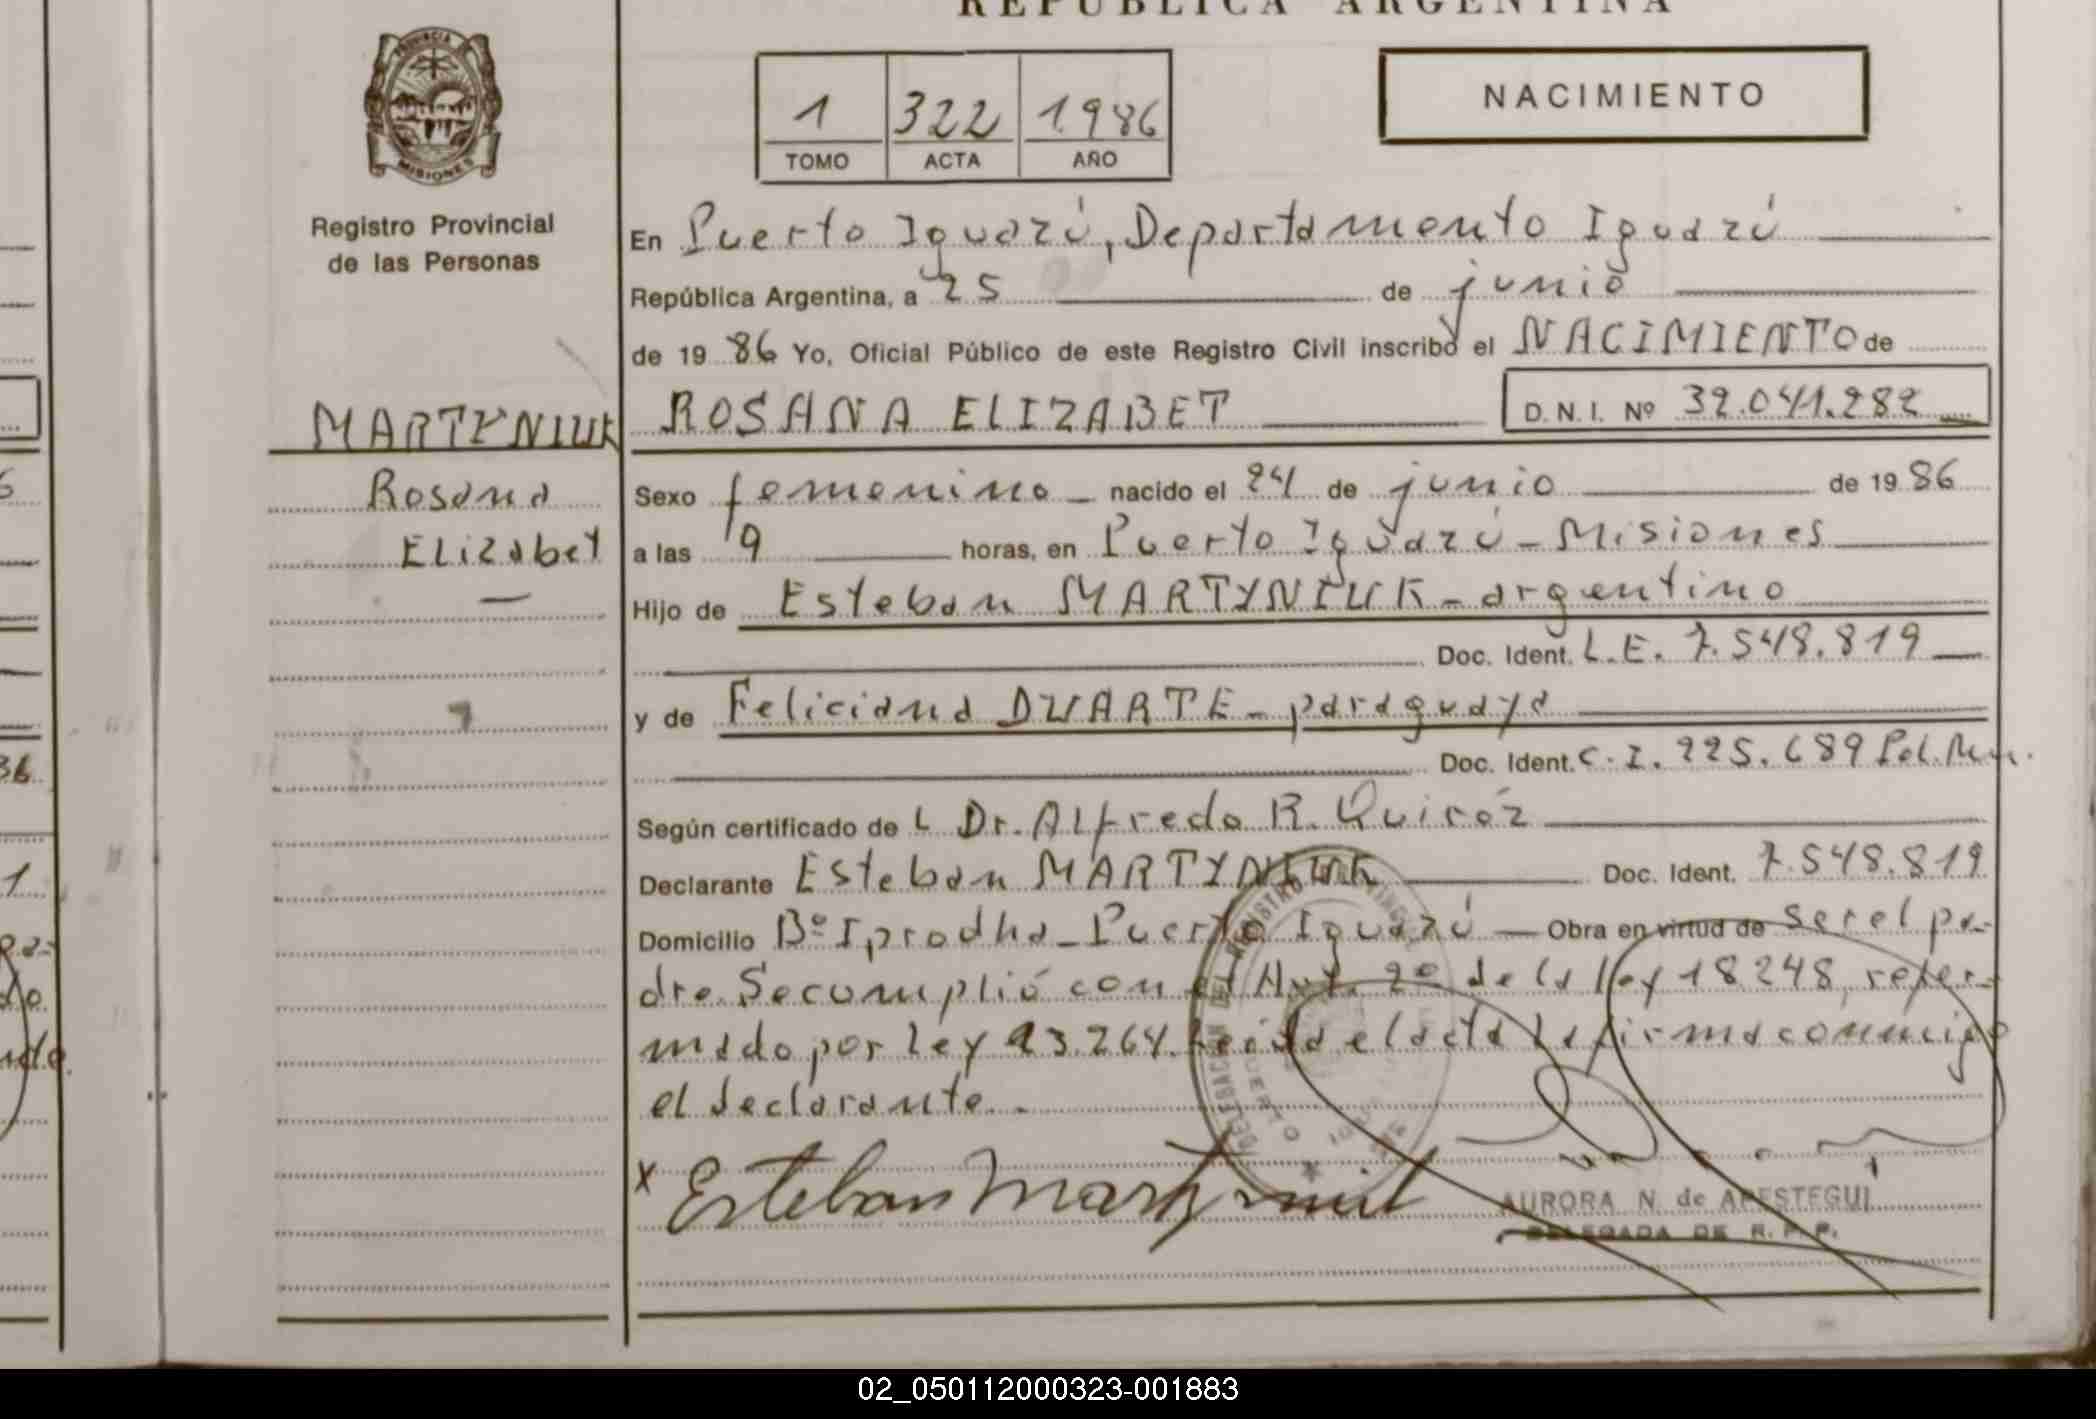 REPUBLICA ARGENTINA
PROVINCIA DE
MISIONES
Registro Provincial
de las Personas
1 322 1986
TOMO ACTA AÑO
NACIMIENTO
En Puerto Iguazú, Departamento Iguazú
República Argentina, a 25 de junio
de 19 86 Yo, Oficial Público de este Registro Civil inscribo el NACIMIENTO de
MARTYNIUK ROSANA ELIZABET D.N.I. Nº 32.041.282
Rosana
Elizabet
Sexo femenino nacido el 24 de junio de 19 86
a las 19 horas, en Puerto Iguazú - Misiones
Hijo de Esteban MARTYNIUK - argentino
Doc. Ident. L.E. 7.548.819
y de Feliciana DUARTE - paraguaya
Doc. Ident. C.I. 225.689 Pol. Mnes.
Según certificado de L Dr. Alfredo R. Quiróz
Declarante Esteban MARTYNIUK Doc. Ident. 7.548.819
Domicilio Bº Iprodha - Puerto Iguazú - Obra en virtud de ser el pa-
dre. Se cumplió con el Art. 2º de la ley 18248, refor-
mado por ley 23.264. Leída el acta la firma conmigo
el declarante.
X Esteban Martyniuk
AURORA N. de APESTEGUI
DELEGADA DE R. P. P.
02_050112000323-001883